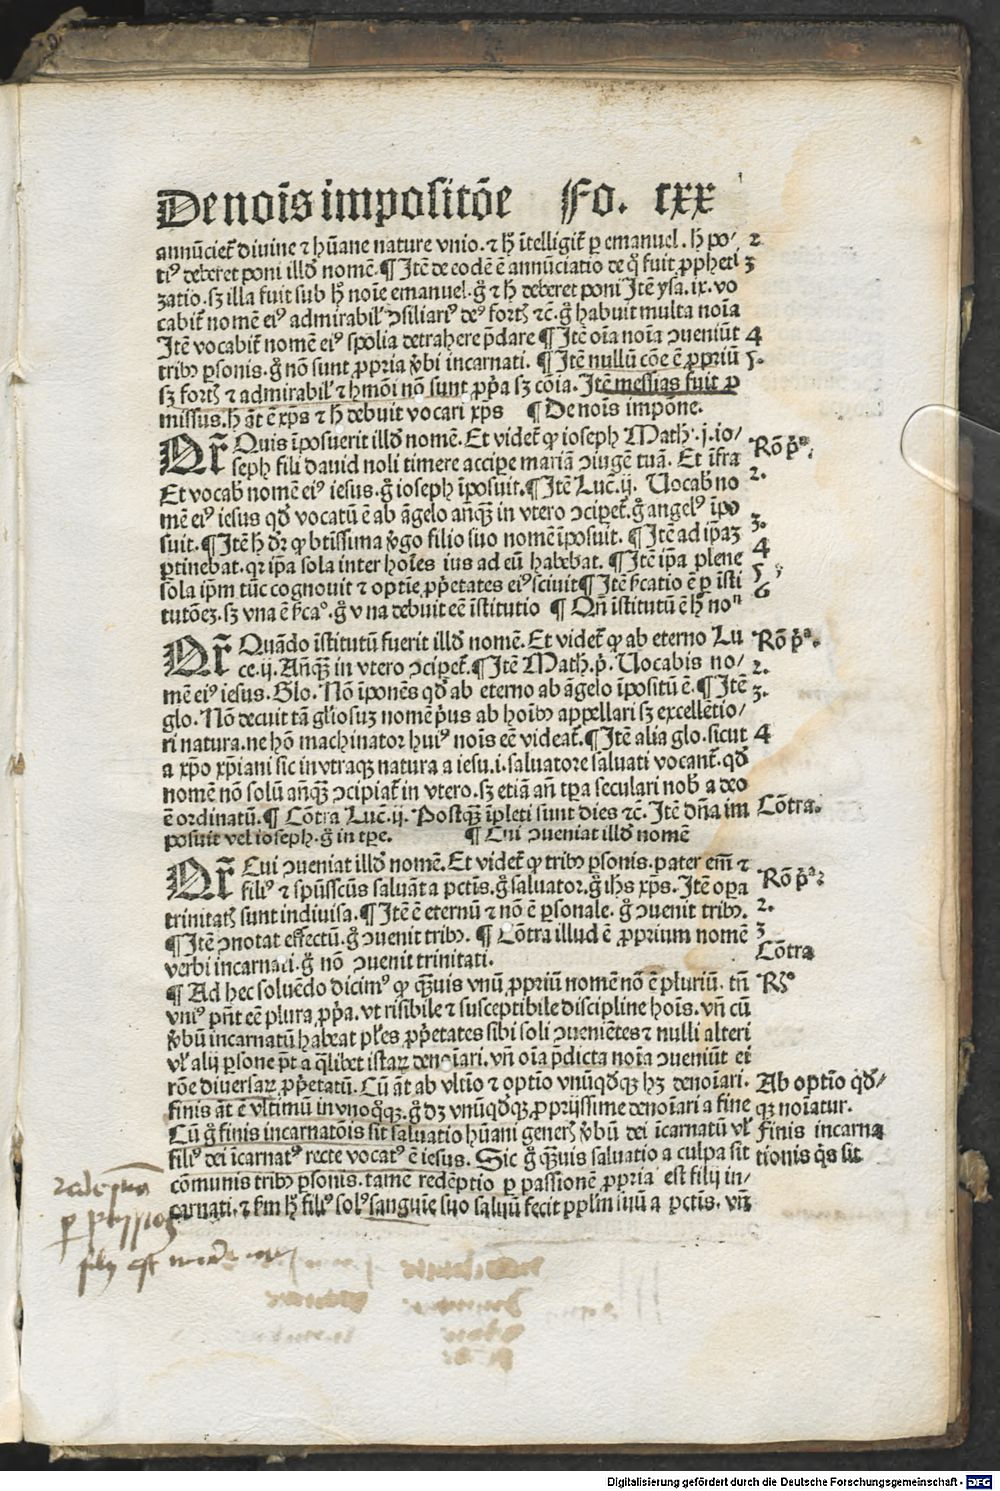 De nois impositōe Fo. cxx
annūciet̄ divine ⁊ hūane nature vnio. ⁊ ħ ītelligit̄ ꝑ emanuel. ħ po/ 2
tiꝰ deberet poni illđ nomē. ¶ Itē de eodē ē annūciatio de q̄ fuit ꝓpheti 3
zatio. sꝫ illa fuit sub ħ noīe emanuel. g̊ ⁊ ħ deberet poni Itē ysa. ix. vo
cabit̄ nomē eiꝰ admirabil' ↄsiliariꝰ deꝰ fortꝭ ⁊c̄. g̊ habuit multa noīa
Itē vocabit̄ nomē eiꝰ spolia detrahere p̄dare ¶ Itē oīa noīa ↄueniūt 4
tribꝰ ꝑsonis. g̊ nō sunt ꝓpria v̊bi incarnati. ¶ Itē nullū cōe ē ꝓpriū 5.
sꝫ fortꝭ ⁊ admirabil' ⁊ hmōi nō sunt ꝓp̄a sꝫ cōia. Itē messias fuit ꝓ
missus. ħ āt ē xp̄s ⁊ ħ debuit vocari xp̄s ¶ De nois impōne.
QR̄ Quis īposuerit illđ nomē. Et videt̄ ꝙ ioseph Math'. j. io/
Rō p̄ᵃ.
seph fili david noli timere accipe mariā ↄiugē tuā. Et īfra
Et vocab̄ nomē eiꝰ iesus. g̊ ioseph īposuit. ¶ Itē Luc̄. ij. Uocab̄ no 2.
mē eiꝰ iesus qđ vocatū ē ab āgelo an̄qꝫ in vtero ↄcipet̄. g̊ angelꝰ īpo
suit. ¶ Itē ħ dr̄ ꝙ btīssima v̊go filio suo nomē īposuit. ¶ Itē ad ip̄aꝫ 3.
ꝑtinebat. qꝛ ip̄a sola inter hoīes ius ad eū habebat. ¶ Itē ip̄a plene 4
sola ip̄m tūc cognovit ⁊ optie ꝓp̄etates eiꝰ scivit ¶ Itē s̄catio ē ꝑ īsti 5
tutōeꝫ. sꝫ vna ē s̄caᵒ. g̊ vna debuit eē īstitutio ¶ Qn̄ īstitutū ē ħ noⁿ 6
QR̄ Quādo īstitutū fuerit illđ nomē. Et videt̄ ꝙ ab eterno Lu
Rō p̄ᵃ.
ce. ij. An̄qꝫ in vtero ↄcipet̄. ¶ Itē Math. p̄. Uocabis no/ 2.
mē eiꝰ iesus. Glo. Nō īponēs qđ ab eterno ab āgelo īpositū ē. ¶ Itē 3.
glo. Nō decuit tā gl'iosuꝫ nomē p̄us ab hoībꝰ appellari sꝫ excellētio/
ri natura. ne hō machinator huiꝰ noīs eē videat̄. ¶ Itē alia glo. sicut 4
a xp̄o xp̄iani sic in vtraqꝫ natura a iesu. i. salvatore salvati vocant̄. qđ
nomē nō solū an̄qꝫ ↄcipiat̄ in vtero. sꝫ etiā an̄ tꝑa seculari nob̄ a deo
ē ordinatū. ¶ Cōtra Luc̄. ij. Postqꝫ īpleti sunt dies ⁊c̄. Itē dn̄a im
Cōtra.
posuit vel ioseph. g̊ in tꝑe. ¶ Cui ↄueniat illđ nomē
QR̄ Cui ↄueniat illđ nomē. Et videt̄ ꝙ tribꝰ ꝑsonis. pater em̄ ⁊
Rō p̄ᵃ.
filiꝰ ⁊ spūsscūs salvāt a pctīs. g̊ salvator. g̊ ihs xp̄s. Itē oꝑa
trinitatꝭ sunt indivisa. ¶ Itē ē eternū ⁊ nō ē ꝑsonale. g̊ ↄuenit tribꝰ. 2.
¶ Itē ↄnotat effectū. g̊ ↄuenit tribꝰ. ¶ Cōtra illud ē ꝓprium nomē 3
verbi incarnati. g̊ nō ↄuenit trinitati.
Cōtra
¶ Ad hec solvēdo dicimꝰ ꝙ qꝫuis vnū ꝓpriū nomē nō ē pluriū. tn̄
Rꝰ
vniꝰ pn̄t eē plura ꝓp̄a. vt risibile ⁊ susceptibile discipline hoīs. vn̄ cū
v̊bū incarnatū habeat pl'es ꝓp̄etates sibi soli ↄueniētes ⁊ nulli alteri
vl' alij ꝑsone pn̄t a qlibet istaꝝ denoīari. vn̄ oīa p̄dicta noīa ↄueniūt ei
rōe diversaꝝ ꝓp̄etatū. Cū āt ab vltīo ⁊ optīo vnūqđqꝫ hꝫ denoīari.
Ab optīo qđ/
finis āt ē vltimū in vnoq̊qꝫ. g̊ dꝫ vnūqđqꝫ ꝓprijssime denoīari a fine
qꝫ noīatur.
Cū g̊ finis incarnatōis sit salvatio hūani generꝭ v̊bū dei īcarnatū vl'
Finis incarna
filiꝰ dei īcarnatꝰ recte vocatꝰ ē iesus. Sic g̊ qꝫuis salvatio a culpa sit
tionis qͥs sit
cōmunis tribꝰ ꝑsonis. tamē redēptio ꝑ passionē ꝓpria est filij in/
carnati. ⁊ s̄m ħ filiꝰ solꝰ sanguīe suo salvū fecit pp'lm suū a pctīs. vn̄
Digitalisierung gefördert durch die Deutsche Forschungsgemeinschaft - DFG